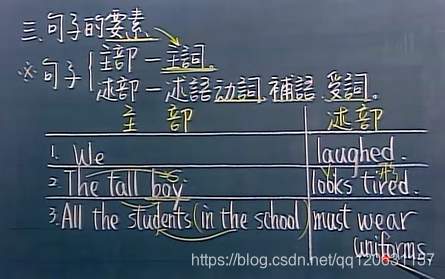 三、句子的要素
※句子{主部一主詞。
述部一述語动詞.補語.受詞。
主 部 述部
1. We laughed.
2. The tall boy looks tired.
3. All the students (in the school) must wear
uniforms
https://blog.csdn.net/qq120631157